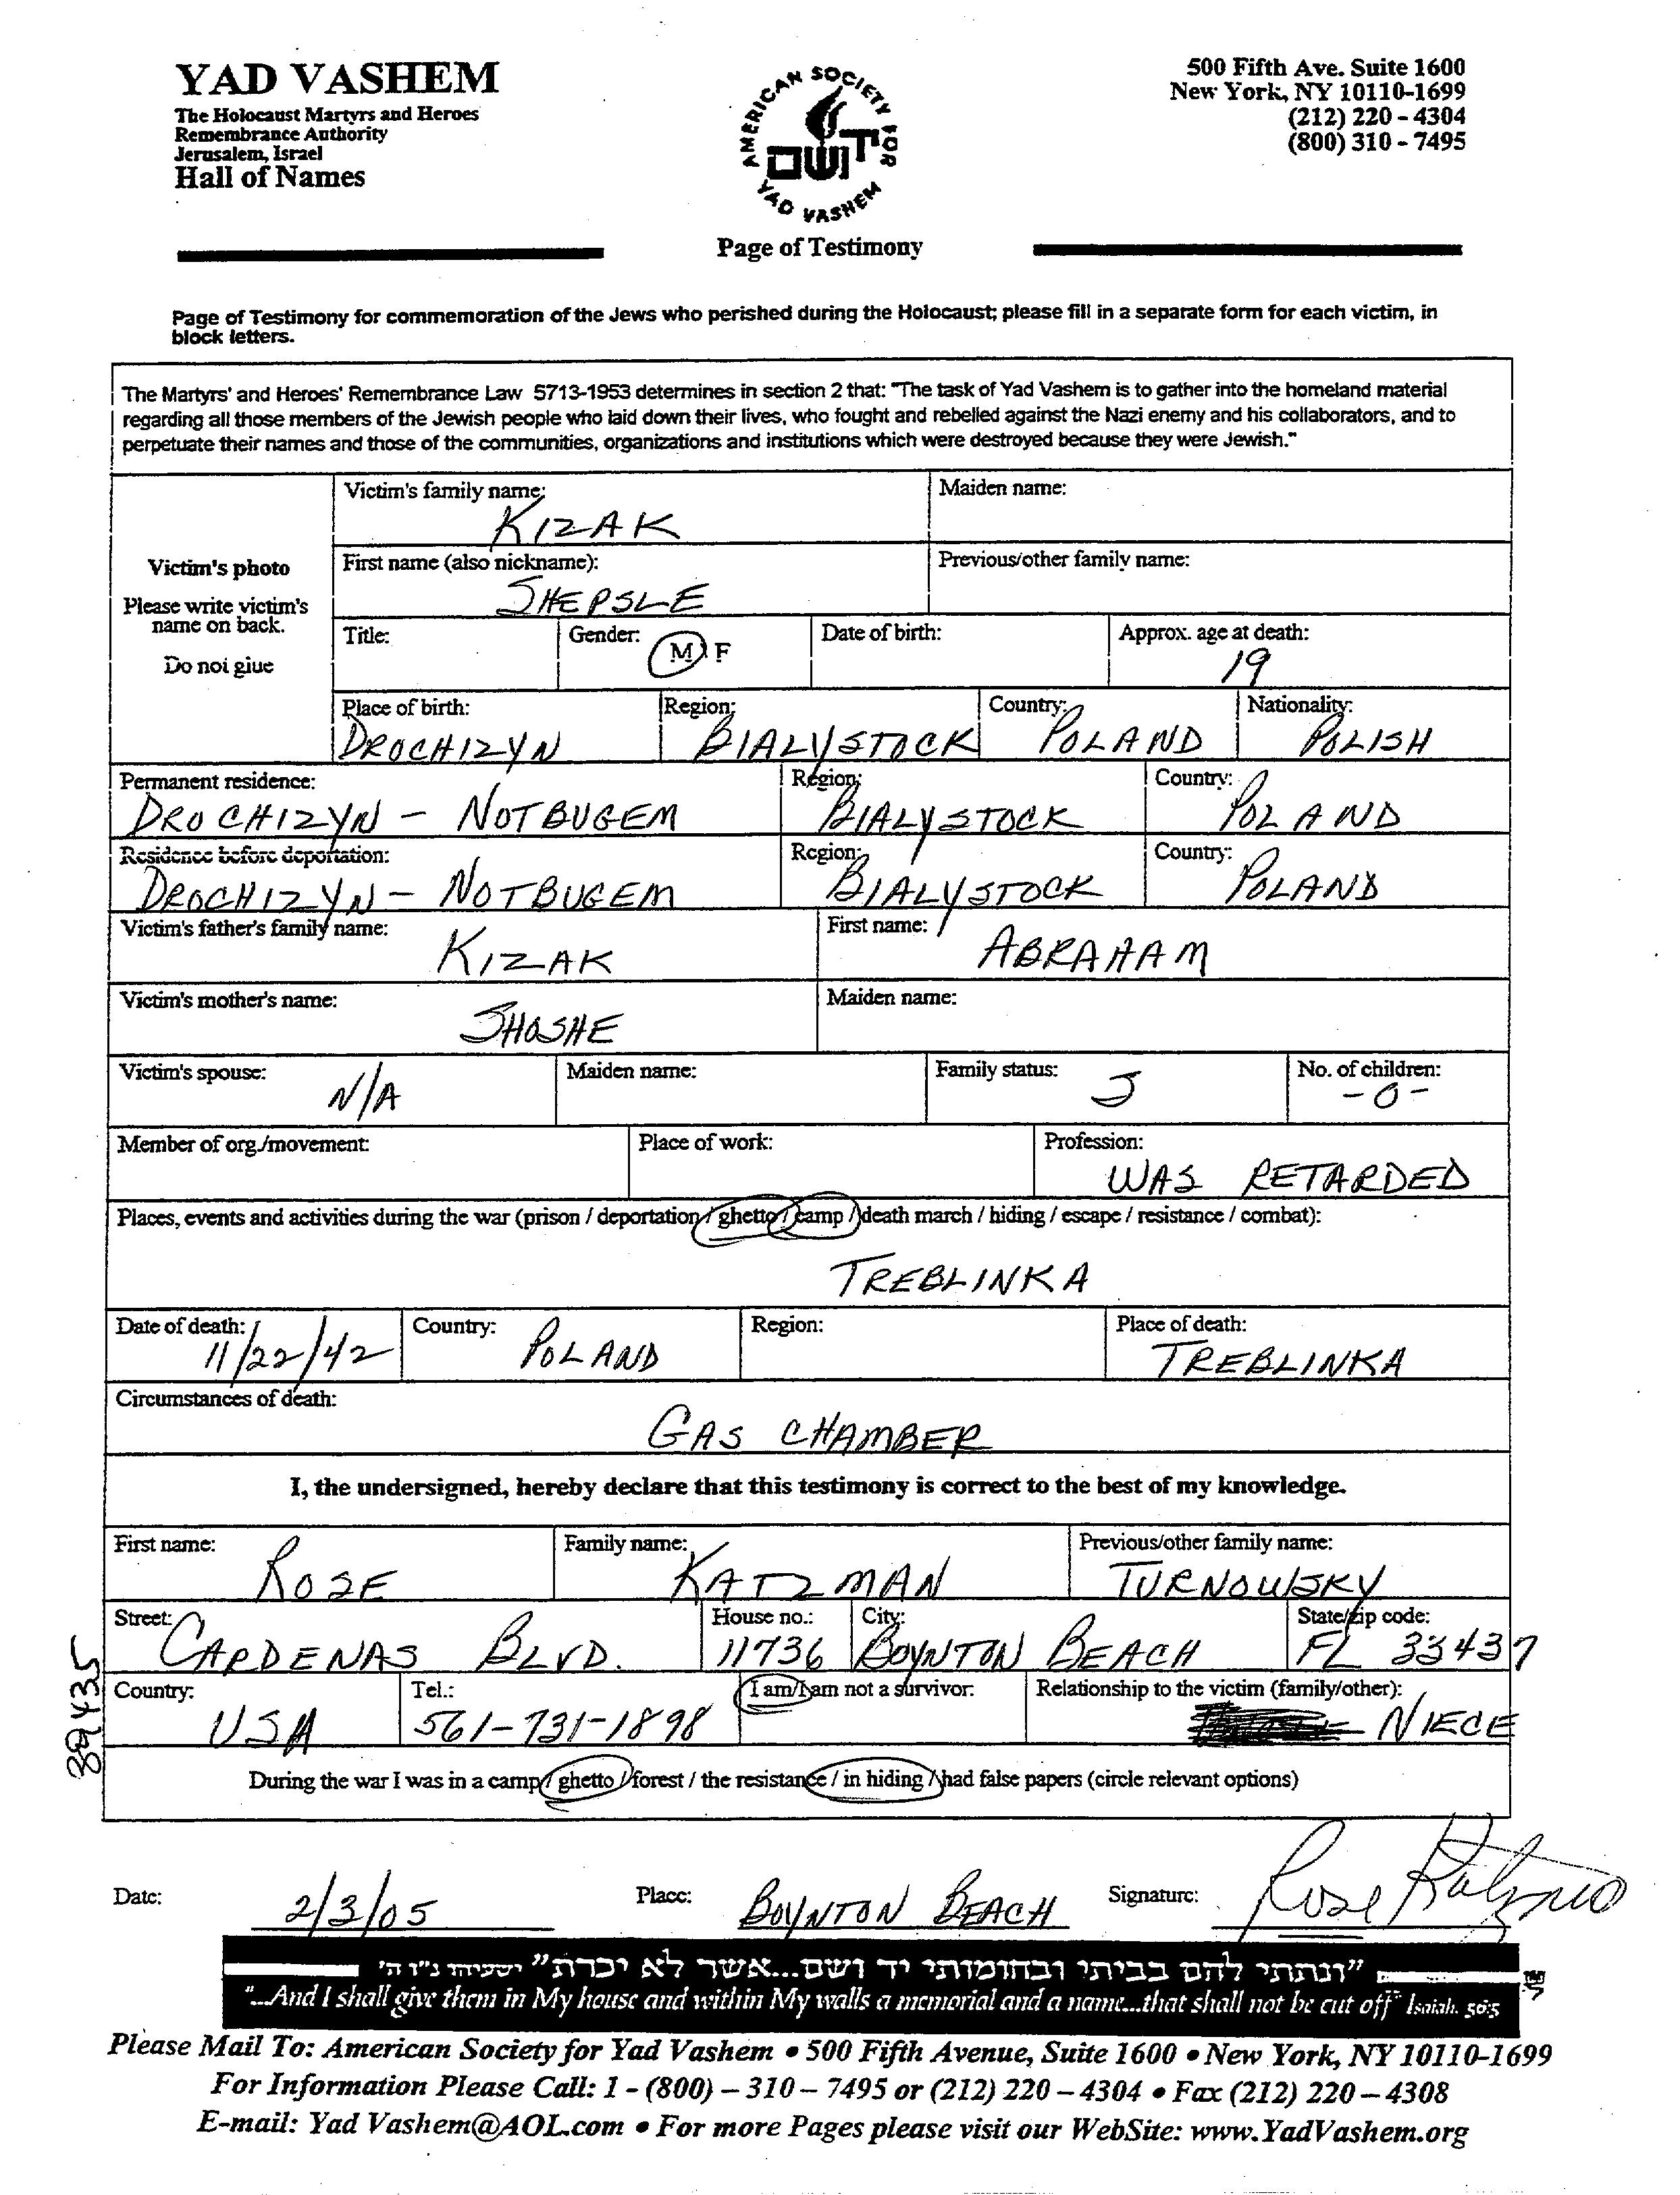 YAD VASHEM
The Holocaust Martyrs and Heroes
Remembrance Authority
Jerusalem, Israel
Hall of Names
AMERICAN SOCIETY FOR
יד ושם
YAD VASHEM
Page of Testimony
500 Fifth Ave. Suite 1600
New York, NY 10110-1699
(212) 220 - 4304
(800) 310 - 7495
Page of Testimony for commemoration of the Jews who perished during the Holocaust; please fill in a separate form for each victim, in
block letters.
The Martyrs' and Heroes' Remembrance Law 5713-1953 determines in section 2 that: "The task of Yad Vashem is to gather into the homeland material
regarding all those members of the Jewish people who laid down their lives, who fought and rebelled against the Nazi enemy and his collaborators, and to
perpetuate their names and those of the communities, organizations and institutions which were destroyed because they were Jewish."
Victim's photo
Please write victim's
name on back.
Do not glue
Victim's family name: KIZAK Maiden name:
First name (also nickname): SHEPSLE Previous/other family name:
Title: Gender: M F Date of birth: Approx. age at death: 19
Place of birth: DROCHIZYN Region: BIALYSTOCK Country: POLAND Nationality: POLISH
Permanent residence: DROCHIZYN - NOTBUGEM Region: BIALYSTOCK Country: POLAND
Residence before deportation: DROCHIZYN - NOTBUGEM Region: BIALYSTOCK Country: POLAND
Victim's father's family name: KIZAK First name: ABRAHAM
Victim's mother's name: SHOSHE Maiden name:
Victim's spouse: N/A Maiden name: Family status: S No. of children: -0-
Member of org./movement: Place of work: Profession: WAS RETARDED
Places, events and activities during the war (prison / deportation / ghetto / camp / death march / hiding / escape / resistance / combat):
TREBLINKA
Date of death: 11/22/42 Country: POLAND Region: Place of death: TREBLINKA
Circumstances of death: GAS CHAMBER
I, the undersigned, hereby declare that this testimony is correct to the best of my knowledge.
First name: ROSE Family name: KATZMAN Previous/other family name: TURNOWSKY
Street: CARDENAS BLVD. House no.: 11736 City: BOYNTON BEACH State/zip code: FL 33437
Country: USA Tel.: 561-731-1898 I am/I am not a survivor. Relationship to the victim (family/other): NIECE
During the war I was in a camp / ghetto / forest / the resistance / in hiding / had false papers (circle relevant options)
389435
Date: 2/3/05 Place: BOYNTON BEACH Signature: Rose Katzman
"ונתתי להם בביתי ובחומותי יד ושם...אשר לא יכרת" ישעיהו נ"ו ה'
"...And I shall give them in My house and within My walls a memorial and a name...that shall not be cut off" Isaiah. 56:5
Please Mail To: American Society for Yad Vashem • 500 Fifth Avenue, Suite 1600 • New York, NY 10110-1699
For Information Please Call: 1 - (800) – 310 – 7495 or (212) 220 – 4304 • Fax (212) 220 – 4308
E-mail: Yad Vashem@AOL.com • For more Pages please visit our WebSite: www.YadVashem.org